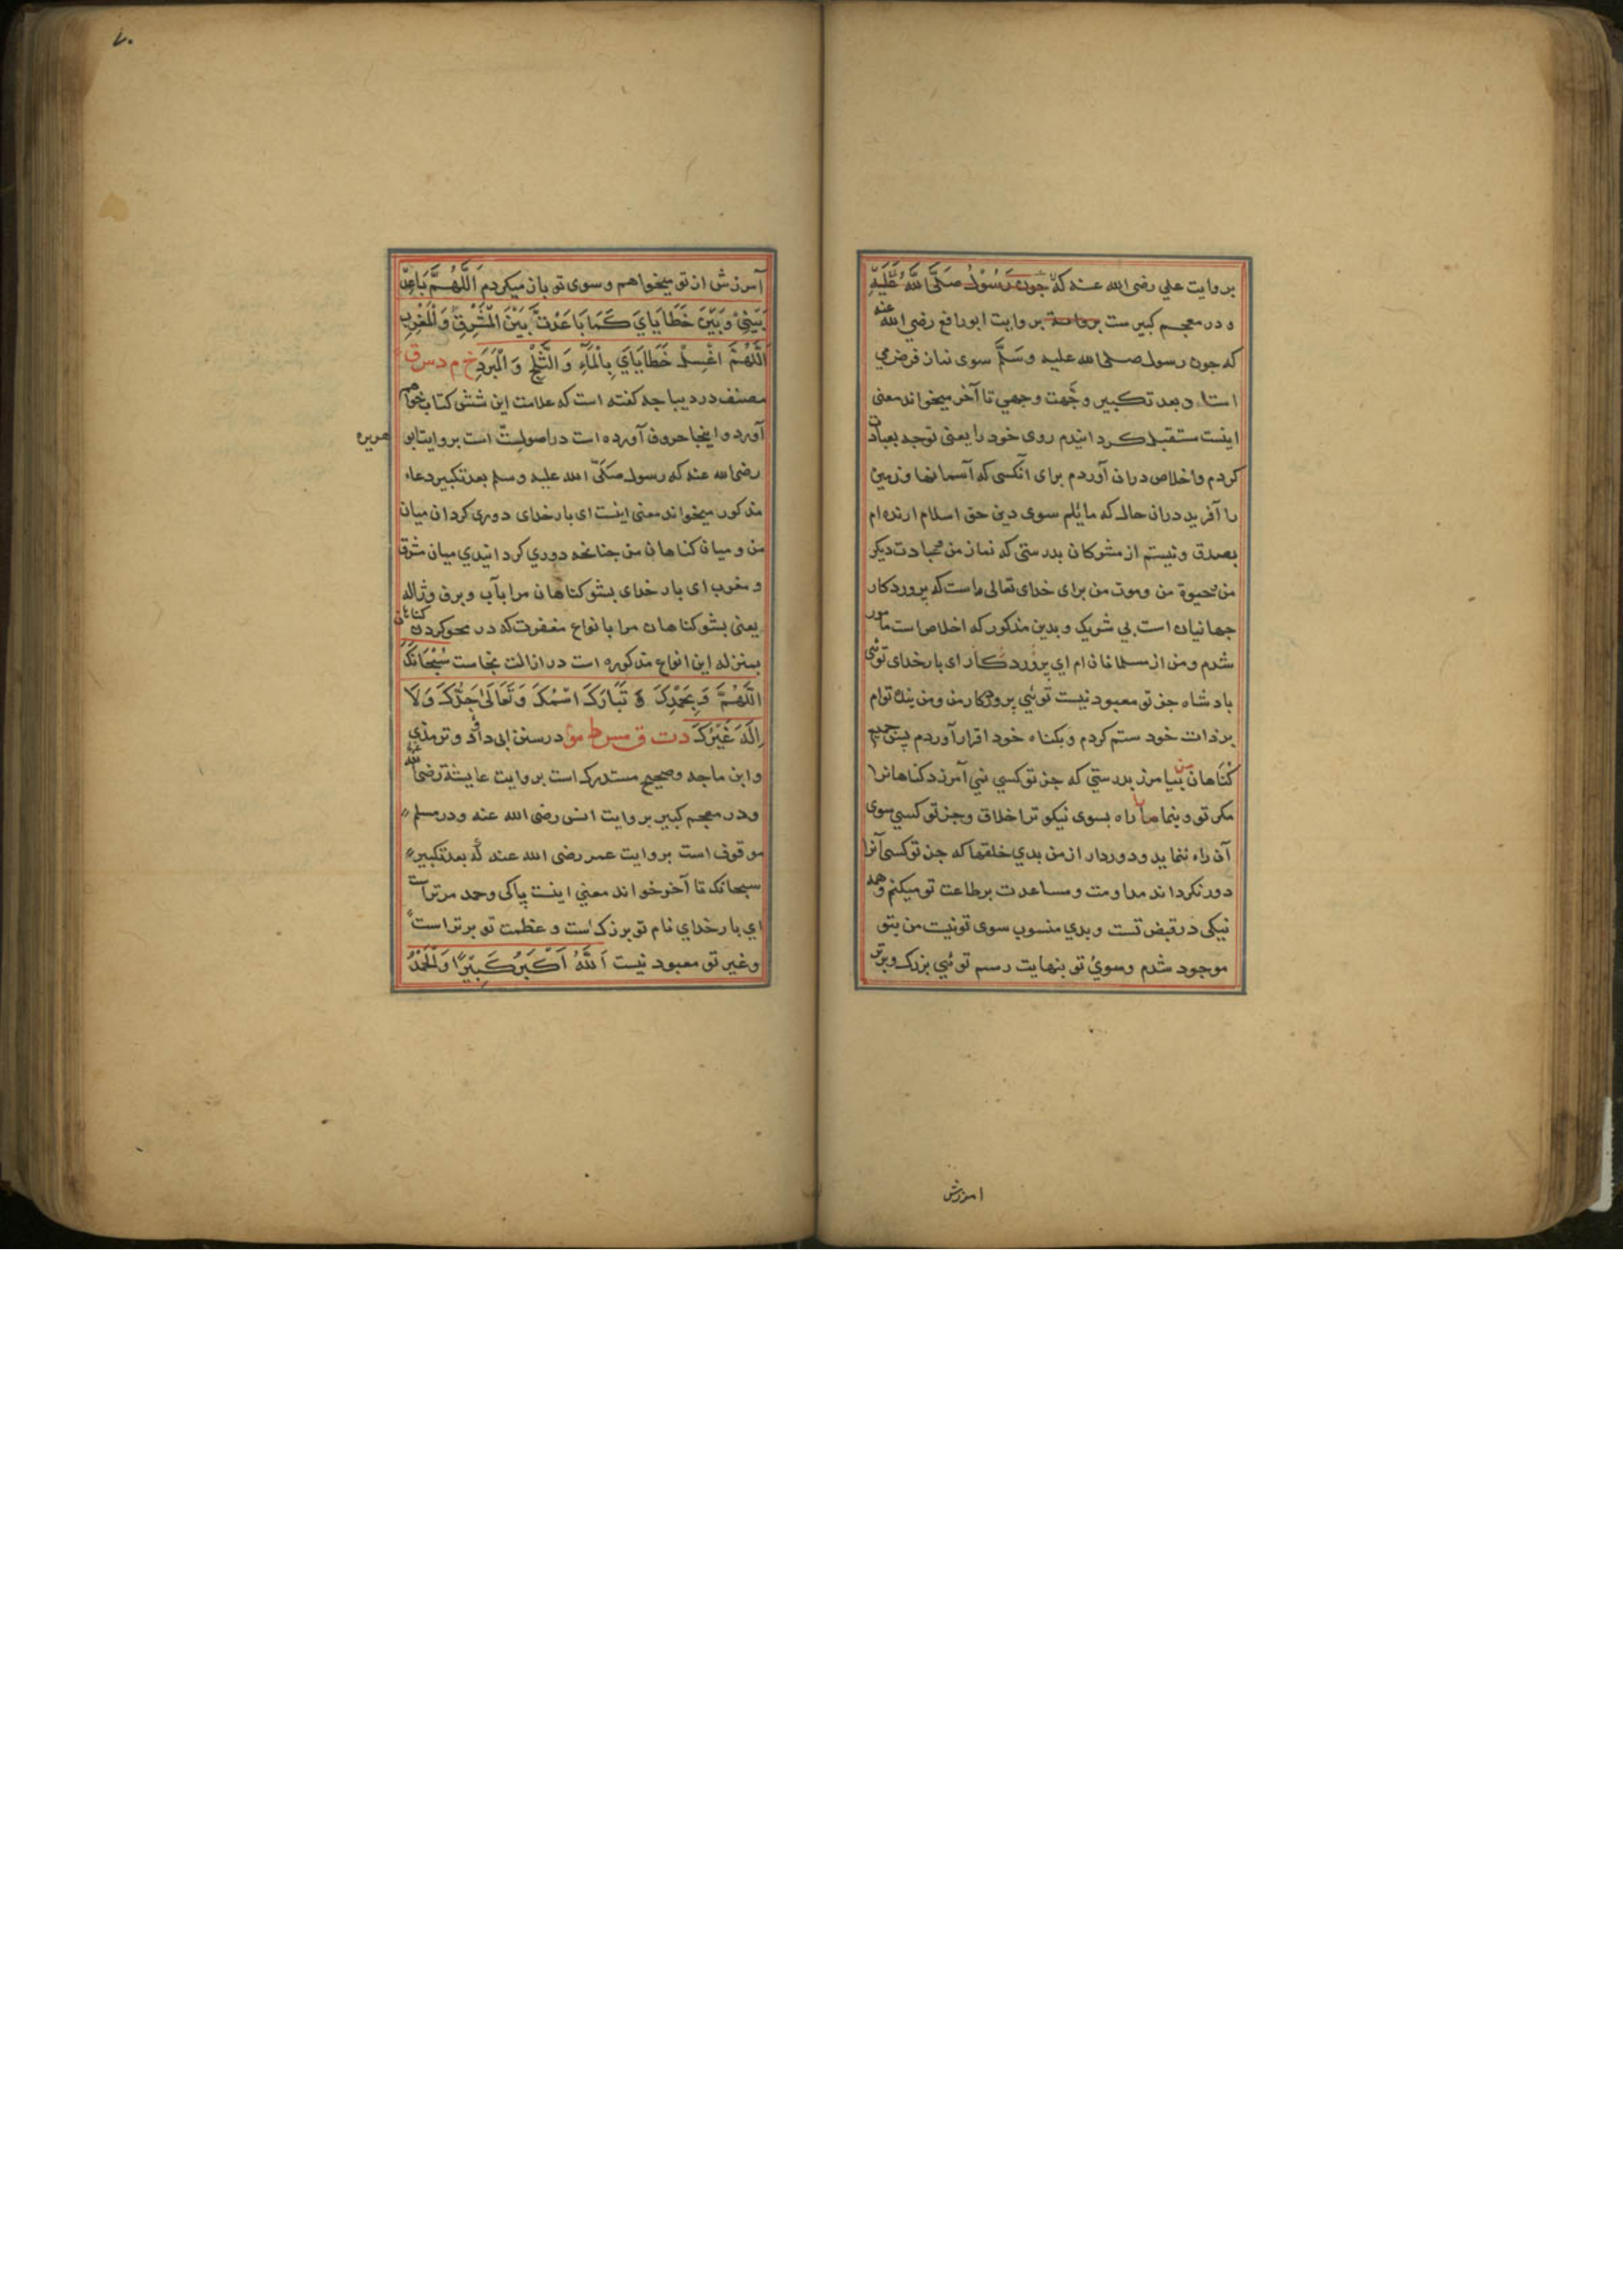 بروایت علي رضی الله عنه که چون رسول صلی الله علیه
و در معجم کبیر ست بروایت ابورافع رضی الله عنه
که جون رسول صلی الله علیه وسلم سوی نماز فرض می
استاد بعد تکبیر وجهت وجهي تا آخر میخواند معنی
اینست مستقبل کردانیدم روی خود را یعنی توجه بعبادت
کردم واخلاص دران آوردم برای آنکسی که آسمانها وزمین
را آفرید دران حال که مایلم سوی دین حق اسلام ارنده ام
بصدق ونیستم از مشرکان بدرستی که نماز من دیکر
من وموت من برای خدای تعالی راست که پروردکار
جهانیان است بی شریک و بدین مذکور که اخلاص است مامور
شدم ومن از مسلمانان ام ای پروردکار ای بارخدای توئی
بادشاه جز تو معبود نیست توئي پروردکار من ومن بنده توام
برذات خود ستم کردم و بکناه خود اقرار آوردم پس جمیع
کناهان من بیامرز بدرستي که جز تو کسي نمي آمرزد کناهانرا
مکر تو و بنما مرا راه بسوی نیکو ترا خلاق وجز تو کسي سوی
آن راه ننماید ودوردار از من بدي خلقها که جز تو کسی آنرا
دور نکرداند مداومت ومساعدت برطاعت تو میکنم وهمه
نیکی در قبض تست وبدي منسوب سوی تو نیست من بتو
موجود شدم وسوئ تو بنهایت رسم توئي بزرک وبرتر
امرزش
۷۰
آمرزش از تو میخواهم وسوی تو باز میکردم اَللّٰهُمَّ بَاعِدْ
بَيْنِيْ وَبَيْنَ خَطَايَايَ كَمَا بَاعَدْتَ بَيْنَ الْمَشْرِقِ وَالْمَغْرِبِ
اَللّٰهُمَّ اغْسِلْ خَطَايَايَ بِالْمَآءِ وَ الثَّلْجِ وَ الْبَرَدِ خ م د س ق
مصنف در دیباجه کفته است که علامت این شش کتاب خواهم
آورد و اینجا حروف آورده است در اصول ست است بروایت ابو هریره
رضی الله عنه که رسول صلی الله علیه وسلم بعد تکبیر دعاء
مذکور میخواند معنی اینست ای بارخدای دوری کردان میان
من و میان کناهان من جنانچه دوري کردانیدي میان مشرق
و مغرب ای بار خدای بشو کناهان مرا بآب وبرف وژاله
یعنی بشو کناهان مرا بانواع مغفرت که در محو کردن کناهان
بمنزله این انواع مذکوره است در ازالت نجاست سُبْحَانَكَ
اَللّٰهُمَّ وَ بِحَمْدِكَ وَ تَبَارَكَ اسْمُكَ وَتَعَالٰى جَدُّكَ وَلَا
اِلٰهَ غَيْرُكَ د ت ق مس ط مو در سنن ابی داؤد وترمذي
وابن ماجه وصحیح مستدرک است بروایت عایشة رضی الله عنها
ودر معجم کبیر بروایت انس رضی الله عنه ودر مسلم
موقوف است بروایت عمر رضی الله عنه که بعد تکبیر
سبحانک تا آخر خواند معني اینست پاکی وحمد مرتراست
اي بار خدای نام تو بزرک است و عظمت تو برتراست
وغیر تو معبود نیست اَللّٰهُ اَكْبَرُ كَبِيْرًا وَالْحَمْدُ